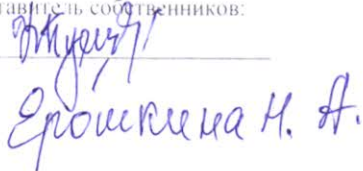 тавитель собственников:
Ерошкина Н. А.